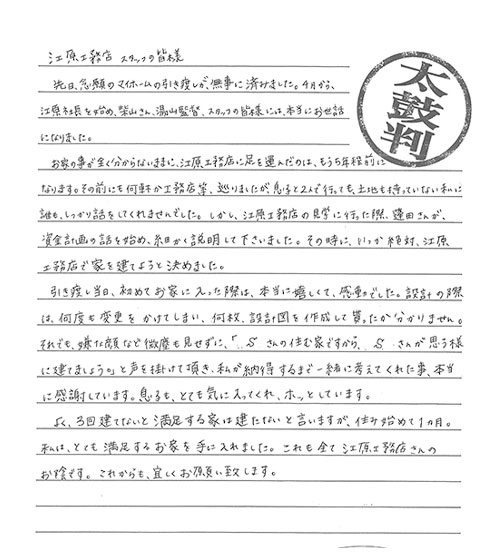 江原工務店 スタッフの皆様
先日、念願のマイホームの引き渡しが、無事に済みました。4月から、
江原社長を始め、柴山さん、湯山監督、スタッフの皆様には、本当にお世話
になりました。
太鼓判
お家の事が全く分からないままに、江原工務店に足を運んだのは、もう5年程前に
なります。その前にも何軒か工務店等、巡りましたが、息子と2人で行っても、土地も持っていない私に
誰も、しっかり話をしてくれませんでした。しかし、江原工務店の見学に行った際、蓬田さんが、
資金計画の話を始め、細かく説明して下さいました。その時に、いつか絶対、江原
工務店で家を建てようと決めました。
引き渡し当日、初めてお家に入った際は、本当に嬉しくて、感動でした。設計の際
は、何度も変更をかけてしまい、何枚、設計図を作成して貰ったか分かりません。
それでも、嫌な顔など微塵も見せずに、「 S さんの住む家ですから、 S さんが思う様
に建てましょう。」と声を掛けて頂き、私が納得するまで一緒に考えてくれた事、本当
に感謝しています。息子も、とても気に入ってくれ、ホッとしています。
よく、3回建てないと満足する家は建たないと言いますが、住み始めて1ヵ月。
私は、とても満足するお家を手に入れました。これも全て江原工務店さんの
お陰です。これからも、宜しくお願い致します。